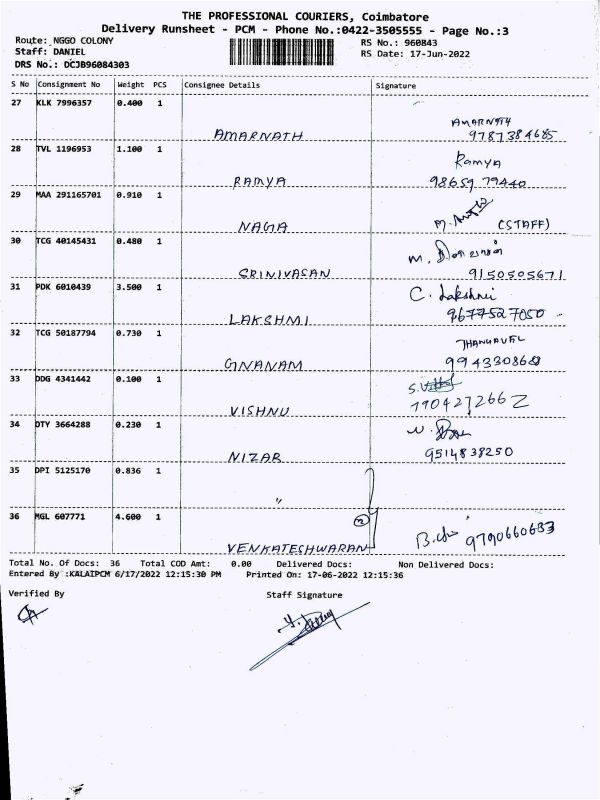 THE PROFESSIONAL COURIERS, Coimbatore
Delivery Runsheet - PCM - Phone No.:0422-3505555 - Page No.:3
Route: NGGO COLONY
RS No.: 960843
Staff: DANIEL
RS Date: 17-Jun-2022
DRS No.: DCJB96084303
S No Consignment No Weight PCS Consignee Details Signature
27 KLK 7996357 0.400 1
AMARNATH
AMARNATH
9787384685
28 TVL 1196953 1.100 1
RAMYA
Ramya
98659 79440
29 MAA 291165701 0.910 1
NAGA
M.
(STAFF)
30 TCG 40145431 0.480 1
SRINIVASAN
M.
9150505671
31 PDK 6010439 3.500 1
LAKSHMI
C. Lakshmi
9677527050
32 TCG 50187794 0.730 1
GNANAM
THANGAVAL
33 DDG 4341442 0.100 1
VISHNU
7904272662
34 DTY 3664288 0.230 1
NIZAR
9514838250
35 DPI 5125170 0.836 1
"
36 MGL 607771 4.600 1
VENKATESHWARAN
2
9790660633
Total No. Of Docs: 36 Total COD Amt: 0.00 Delivered Docs: Non Delivered Docs:
Entered By :KALAIPCM 6/17/2022 12:15:30 PM Printed On: 17-06-2022 12:15:36
Verified By Staff Signature